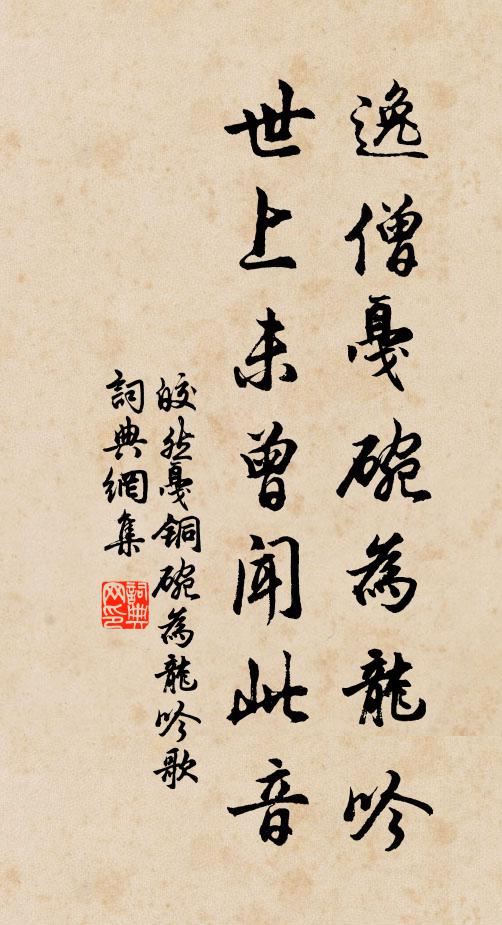 逸僧戛碗為龍吟
世上未曾聞此音
皎然戛銅碗為龍吟歌
詞典網集
詞典網印